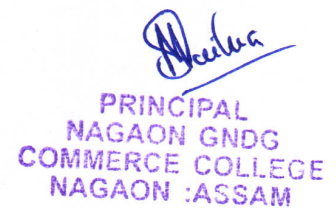 PRINCIPAL
NAGAON GNDG
COMMERCE COLLEGE
NAGAON :ASSAM